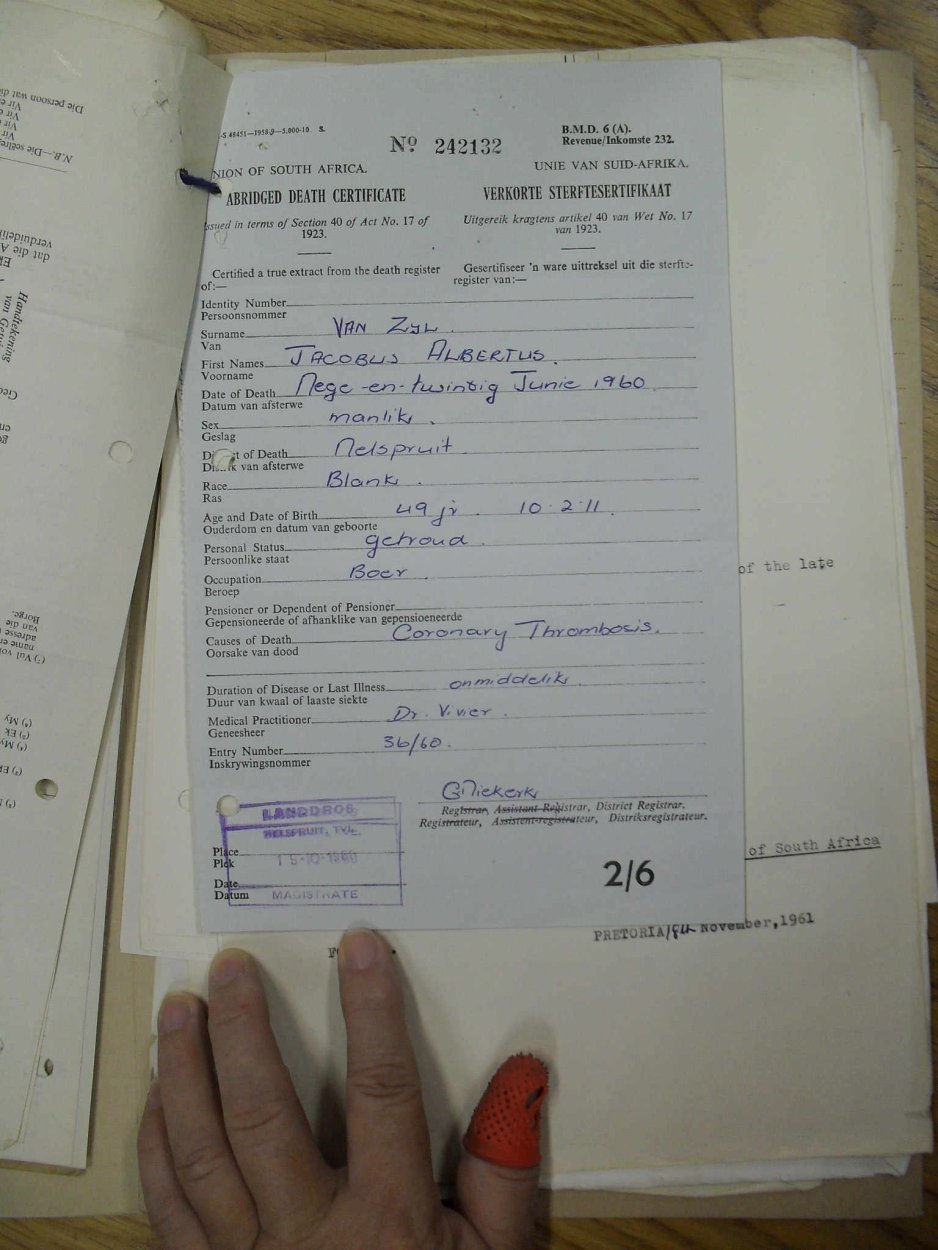 -S.48451—1958-9—5,000-10. S.
B.M.D. 6 (A).
Revenue/Inkomste 232.
No 242132
NION OF SOUTH AFRICA.
UNIE VAN SUID-AFRIKA.
ABRIDGED DEATH CERTIFICATE
VERKORTE STERFTESERTIFIKAAT
ssued in terms of Section 40 of Act No. 17 of
1923.
Uitgereik kragtens artikel 40 van Wet No. 17
van 1923.
Certified a true extract from the death register
of:—
Gesertifiseer 'n ware uittreksel uit die sterfte-
register van:—
Identity Number
Persoonsnommer
Surname VAN ZYL.
Van
First Names JACOBUS ALBERTUS.
Voorname
Date of Death Nege-en-twintig Junie 1960
Datum van afsterwe
Sex manlik.
Geslag
District of Death Nelspruit
Distrik van afsterwe
Race Blank.
Ras
Age and Date of Birth 49 jr. 10.2.11.
Ouderdom en datum van geboorte
Personal Status getroud.
Persoonlike staat
Occupation Boer.
Beroep
Pensioner or Dependent of Pensioner
Gepensioneerde of afhanklike van gepensioeneerde
Causes of Death Coronary Thrombosis.
Oorsake van dood
Duration of Disease or Last Illness onmiddelik.
Duur van kwaal of laaste siekte
Medical Practitioner Dr. Vivier.
Geneesheer
Entry Number 36/60.
Inskrywingsnommer
GNiekerk
Registrar, Assistant Registrar, District Registrar.
Registrateur, Assistent-registrateur, Distriksregistrateur.
LANDDROS
NELSPRUIT, TVL.
Place
Plek
Date
Datum
MAGISTRATE
2/6
of the late
of South Africa
PRETORIA/ November, 1961
Die persoon wat di
N.B.—Die seëlreg
verduidelik
dat die A
Handtekening
van Getui
Borge.
van die
adresse
name en
(7) Vul vol
(8) My
(9) Ek
(8) My